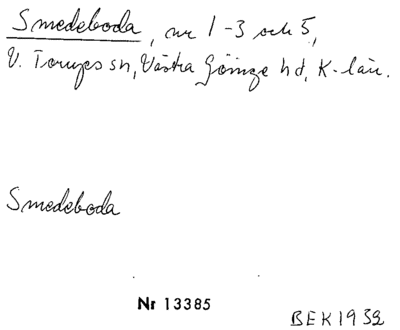 Smedeboda, nr 1-3 och 5,
V. Torups sn, Västra Göinge hd, K-län.
Smedeboda
Nr 13385
BEK 1932